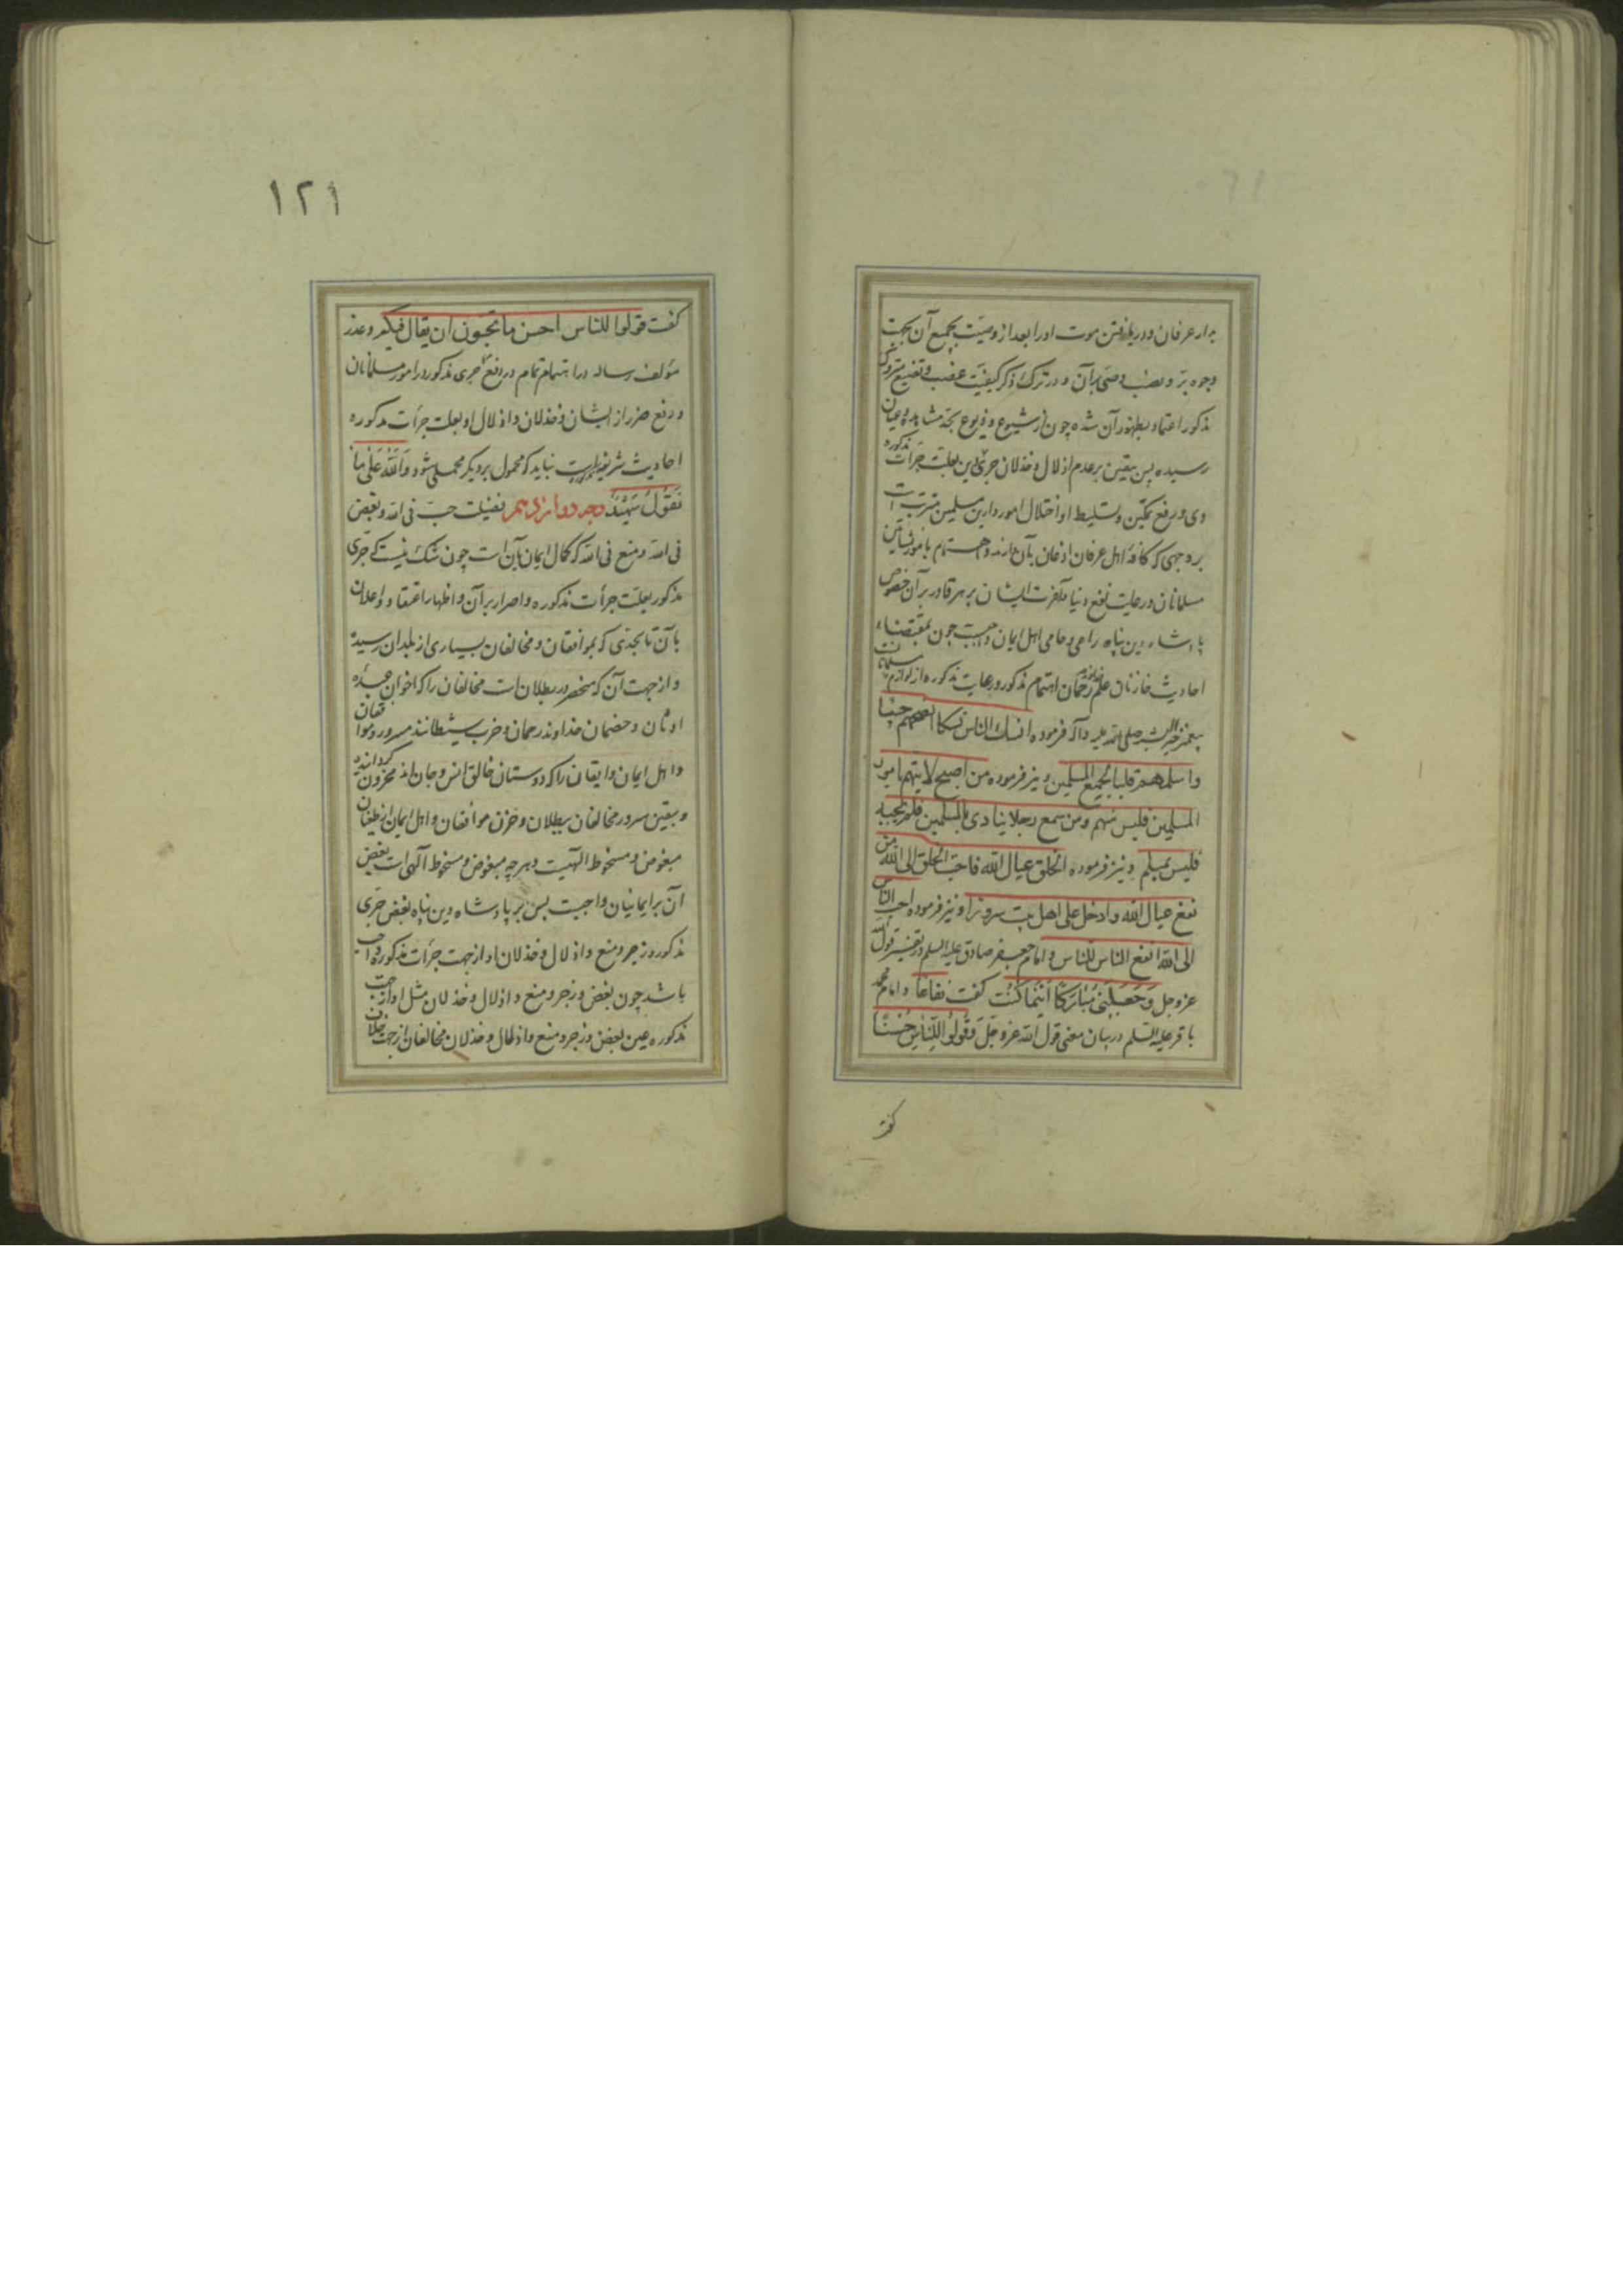 به ار عرفان و دریافتن موت او را بعد از وصیت بجمیع آن بجهت
وجوه بر و نصب وصی بر آن و در ترک ذکر کیفیت غصب و تضییع متروک
مذکور اعتماد بظهور آن شده چون از شیوع و ذیوع بحد مشاهده و عیان
رسیده پس یقین بر عدم اذلال و خذلان جری این بعلت جرأت مذکوره
وی و رفع تمکین و تسلیط او اختلال امور دارین مسلمین مترتب است
بر وجهی که کافه اهل عرفان اذعان بآن دارند و اهتمام بامور نشأتین
مسلمانان و رعایت نفع دنیا و آخرت ایشان بر هر قادر بر آن خصوص
پادشاه دین پناه راعی و حامی اهل ایمان واجبست چون بمقتضاء
احادیث خازنان علم خداوند رحمان اهتمام مذکور و رعایت مذکوره از لوازم مسلمانیست
پیغمبر خیر البشر صلی الله علیه و آله فرموده انسک الناس نسکا انصحهم جیبا
و اسلمهم قلبا لجمیع المسلمین و نیز فرموده من اصبح لا یهتم بامور
المسلمین فلیس منهم و من سمع رجلا ینادی یا للمسلمین فلم یجبه
فلیس بمسلم و نیز فرموده الخلق عیال الله فاحب الخلق الی الله من
نفع عیال الله و ادخل علی اهل بیت سرورا و نیز فرموده احب الناس
الی الله انفع الناس للناس و امام جعفر صادق علیه السلم در تفسیر قول
عز و جل وَجَعَلَنِی مُبَارَکًا اَیْنَمَا کُنْتُ گفت نفاعا و امام محمد
باقر علیه السلم در بیان معنی قول الله عز و جل وَقُولُوا لِلنَّاسِ حُسْنًا
گفت
١٢١
گفت قولوا للناس احسن ما تحبون ان یقال فیکم و عذر
مؤلف رساله در اهتمام تمام در دفع جری مذکور در امور مسلمانان
و رفع ضرر از ایشان و خذلان و اذلال او بعلت جرأت مذکوره
احادیث شریفه است نباید که محمول بر دیگر محملی شود وَاللّٰهُ عَلٰی مَا
نَقُولُ شَهِیْدٌ وجه دوازدهم فضیلت حب فی الله و بغض
فی الله و منع فی الله که کمال ایمان بآن است چون شک نیست که جری
مذکور بعلت جرأت مذکوره و اصرار بر آن و اظهار اعتقاد و اعلان
بآن تا بحدی که بموافقان و مخالفان بسیاری از بلدان رسیده
و از جهت آن که منحصر در بطلان است مخالفان را که اخوان عبده
اوثان و خصمان خداوند رحمان و حزب شیطانند مسرور و موافقان
و اهل ایمان و ایقان را که دوستان خالق انس و جان اند محزون گردانیده
و بیقین سرور مخالفان ببطلان و حزن موافقان و اهل ایمان از طغیان
مبغوض و مسخوط الهیست و هر چه مبغوض و مسخوط الهی است بغض
آن بر ایمانیان واجبست پس بر پادشاه دین پناه بغض جری
مذکور و زجر و منع و اذلال و خذلان او از جهت جرأت مذکوره واجب
باشد چون بغض و زجر و منع و اذلال و خذلان مثل او از جهت
مذکوره عین بغض و زجر و منع و اذلال و خذلان مخالفان از جهت خلاف